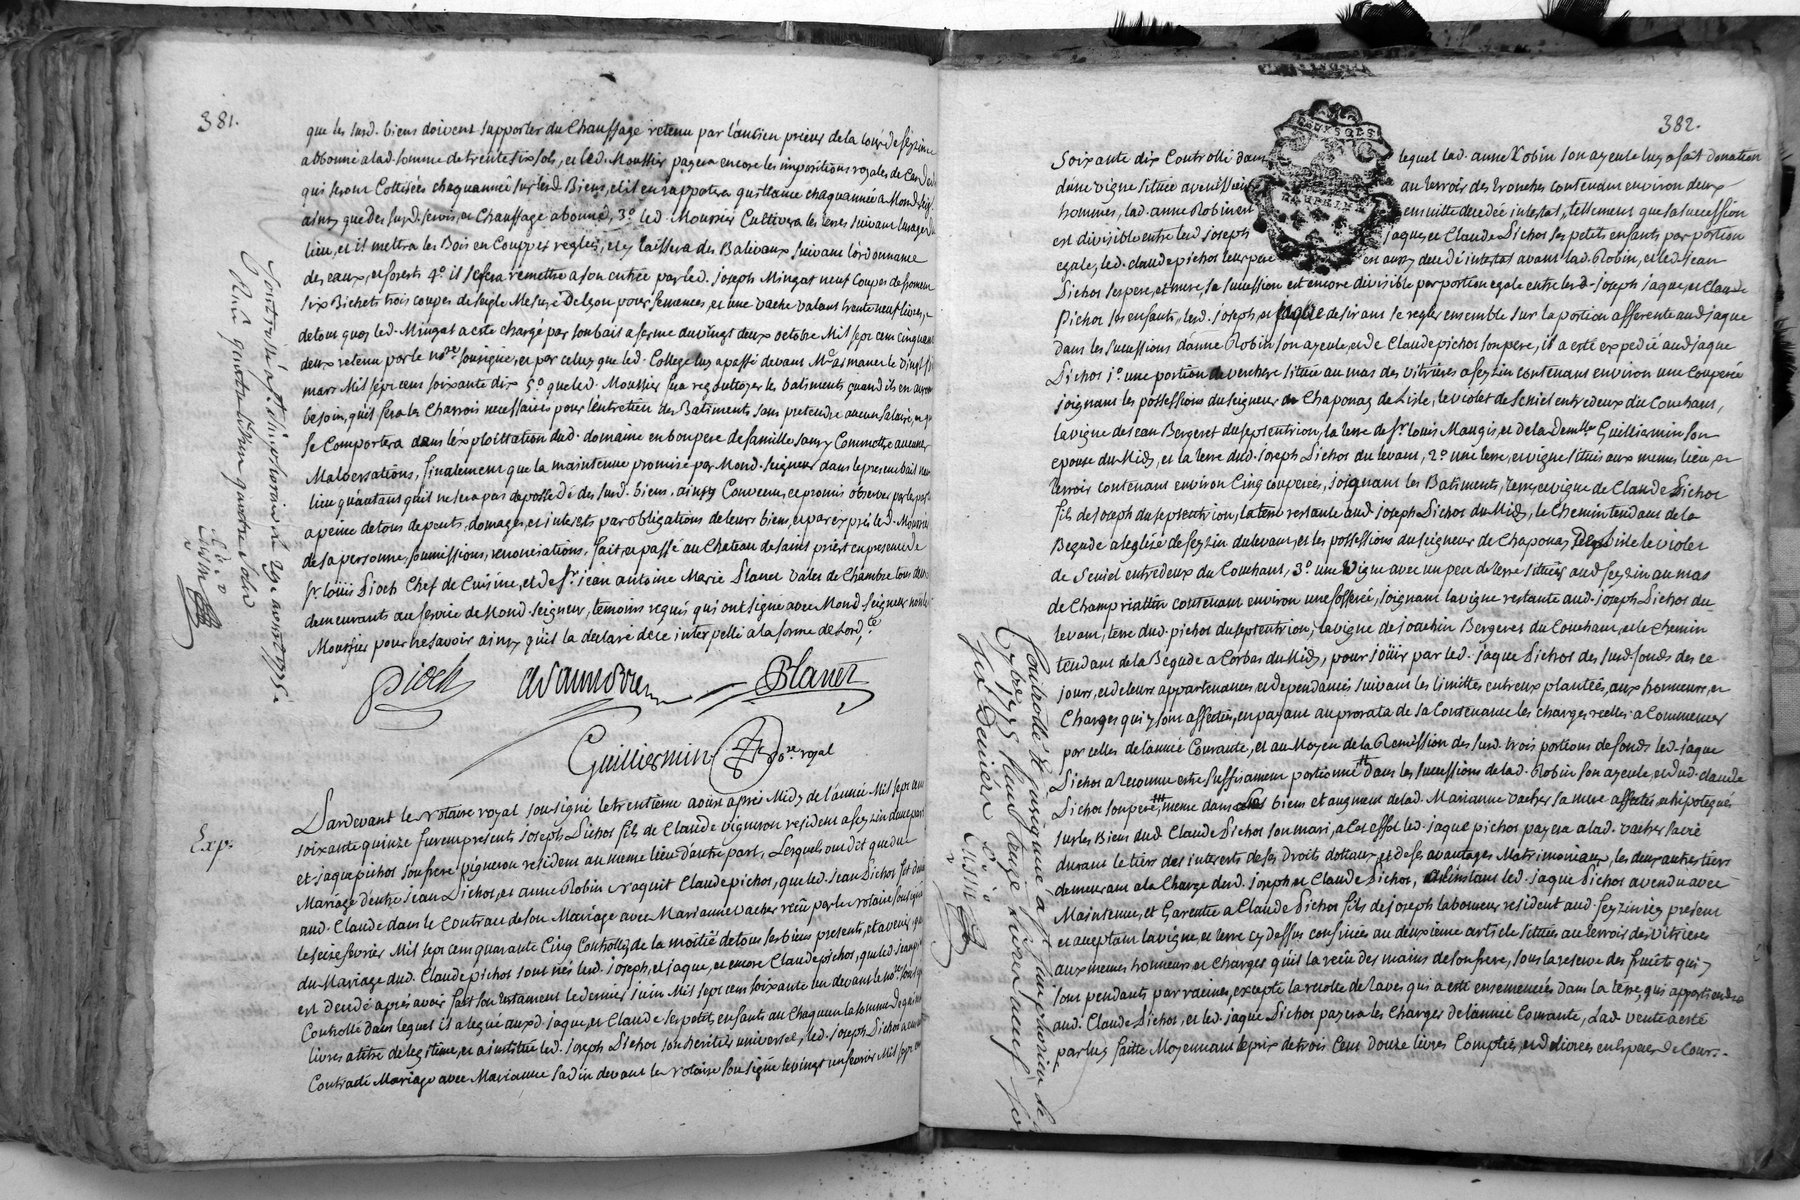 381.
que les surd. biens doivent supporter du Chauffage retenu par l'ancien prieur de la Cour de feyzin
abbonné a lad. somme de trente six sols, et led. Moussier payera encore les impositions royales de
qui seront Cottisées chaquannée sur lesd. Biens, et il en rapportera quittance chaquannée a Mond. seigr
ainsy que des surd. servis, et Chauffage abonné, 3.° led. Moussier Cultivera les terres suivant l'usage du
lieu, et il mettra les Bois en Couppes reglées, et y laissera des Balivaux suivant l'ordonnance
des eaux, et forests 4.° il se fera remettre a son entrée par led. joseph Mingat neuf Coupes de froment
six Bichets trois coupes de seigle Mesure Delyon pour semences, et une vache valant trente neuf livres,
de tous quoy led. Mingat a esté chargé par son bail a ferme du vingt deux octobre Mil sept cent cinquante
deux retenu par le nore soussigné, et par celuy que led. College luy a passé devant Me
mars Mil sept cent soixante dix 5.° que led. Moussier fera regouttoyer les batiments quand ils en auront
besoin, qu'il fera les Charrois necessaires pour l'entretien des Batiments sans pretendre aucun salaire, et qu'il
se Comportera dans l'exploittation dud. domaine en bon pere de famille sans y Commettre aucunes
Malversations, finalement que la maintenue promise par Mond. seigneur dans le present bail
lieu qu'autant qu'il ne sera pas depossedé des surd. biens, ainsy Convenu, et promis observer par les parties
a peine de tous depents, domages, et interests par obligations de leurs biens, et par exprés led. Moussier
de sa personne, soumissions, renonciations, fait, et passé au Chateau de saint priest en presence de
sr. louis Pioch Chef de Cuisine, et de sr. jean antoine Marie Planet valet de Chambre tous deux
demeurants au service de Mond. seigneur, temoins requis qui ont signé avec Mond. seigneur non led.
Moussier pour ne savoir ainsy qu'il la declaré de ce interpellé a la forme de lord.ce
Pioch
Planet
Guilliermin no.re royal
Controllé a st. simphorien le 29 aoust 1775.
Exp.
Pardevant le notaire royal soussigné le trentieme aoust aprés Midy de l'année Mil sept cent
soixante quinze furent presents joseph Pichot fils de Claude vigneron resident a feyzin d'une part
et jaque pichot son frere vigneron resident au meme lieu d'autre part, Lesquels ont dit que du
Mariage d'entre jean Pichot, et anne Robin naquit Claude pichot, que led. jean Pichot fit don
aud. Claude dans le Contract de son Mariage avec Marianne vacher reçu par le notaire soussigné
le seize fevrier Mil sept cent quarante Cinq Controllé, de la moitié de tous ses biens presents, et avenir, que
du Mariage dud. Claude pichot sont nés led. joseph, et jaque, et encore Claude pichot, que led. jean pichot
est decedé aprés avoir fait son testament le dernier juin Mil sept cent soixante un devant le nore soussigné
Controllé dans lequel il a legué auxd. jaque, et Claude ses petits enfants au Chaqu'un la somme de
livres a titre de legitime, et a institué led. joseph Pichot son heritier universel, led. joseph Pichot a
Contracté Mariage avec Marianne sadin devant le notaire soussigné le vingt un fevrier Mil sept cent
382.
soixante dix Controllé dans lequel lad. anne Robin son ayeule luy a fait donation
d'une vigne située a venissieu au terroir des tronches contenant environ deux
hommes, lad. anne Robin est ensuitte decedée intestat, tellement que sa succession
est divisible entre led. joseph jaque, et Claude Pichot ses petits enfants par portion
egale, led. claude pichot leur pere en aussy decedé intestat avant lad. Robin, et led. jean
Pichot ses pere, et mere, sa succession est encore divisible par portion egale entre led. joseph jaque, et Claude
Pichot ses enfants, lesd. joseph, et jaque desirant se regler ensemble sur la portion afferente aud. jaque
dans les successions d'anne Robin son ayeule, et de Claude pichot son pere, il a esté expedié aud. jaque
Pichot 1.° une portion de verchere située au mas des vitrieres a feyzin contenant environ une Couperée
joignant les possessions du seigneur de Chaponay de Lisle, le violet de seniel entredeux du Couchant,
la vigne de jean Bergeret du septentrion, la terre de sr. louis Maugis, et de la Demlle Guilliermin son
epouse du Midy, et la terre dud. joseph Pichot du levant, 2.° une terre, et vigne situés aux memes lieu, et
terroir contenant environ Cinq couperées, joignant les Batiments, terre, et vigne de Claude Pichot
fils de joseph du septentrion, la terre restante aud. joseph Pichot du Midy, le Chemin tendant de la
Begude a l'eglise de feyzin du levant, et les possessions du seigneur de Chaponay Delisle le violet
de Seniel entredeux du Couchant, 3.° une vigne avec un peu de terre situées aud. feyzin au mas
de Champriattin contenant environ une fosserée, joignant la vigne restante aud. joseph Pichot du
levant, terre dud. pichot du septentrion, la vigne de joachin Bergeret du Couchant, et le Chemin
tendant de la Begude a Corbas du Midy, pour jouir par led. jaque Pichot des surd. fonds des ce
jours, et de leurs appartenances, et dependances suivant les limittes entreux plantées, aux honneurs, et
Charges qui y sont affectées, en payant au prorata de sa Contenance les charges reelles a Commencer
par celles de l'année Courante, et au Moyen de la Remission des surd. trois portions de fonds led. jaque
Pichot a Reconnu estre suffisament portionné dans les successions de lad. Robin son ayeule, et dud. claude
Pichot son pere, meme dans les biens et augment de lad. Marianne vacher sa mere affectés, et hipotequés
sur les Biens dud. Claude Pichot son mari, a Cet effet led. jaque pichot payera a lad. vacher sa mere
durant le tiers des interests de ses Droits dotaux, et de ses avantages Matrimoniaux, les deux autres tiers
demeurant a la Charge desd. joseph, et Claude Pichot, a l'instant led. jaque Pichot a vendu avec
Maintenue, et Garentie a Claude Pichot fils de joseph laboureur resident aud. feyzin icy present
et acceptant la vigne, et terre cy dessus confinées au deuxieme article situées au terroir des vitrieres
aux memes honneurs, et Charges qu'il la reçue des mains de son frere, sous la reserve des fruits qui y
sont pendants par racines, excepté la recolte de raves qui a esté ensemencées dans la terre, qui appartiendra
aud. Claude Pichot, et led. jaque Pichot payera les Charges de l'année Courante, Lad. vente a esté
par luy faitte Moyennant le prix de trois Cent douze livres Comptées, et delivrées en Especes de Cour..